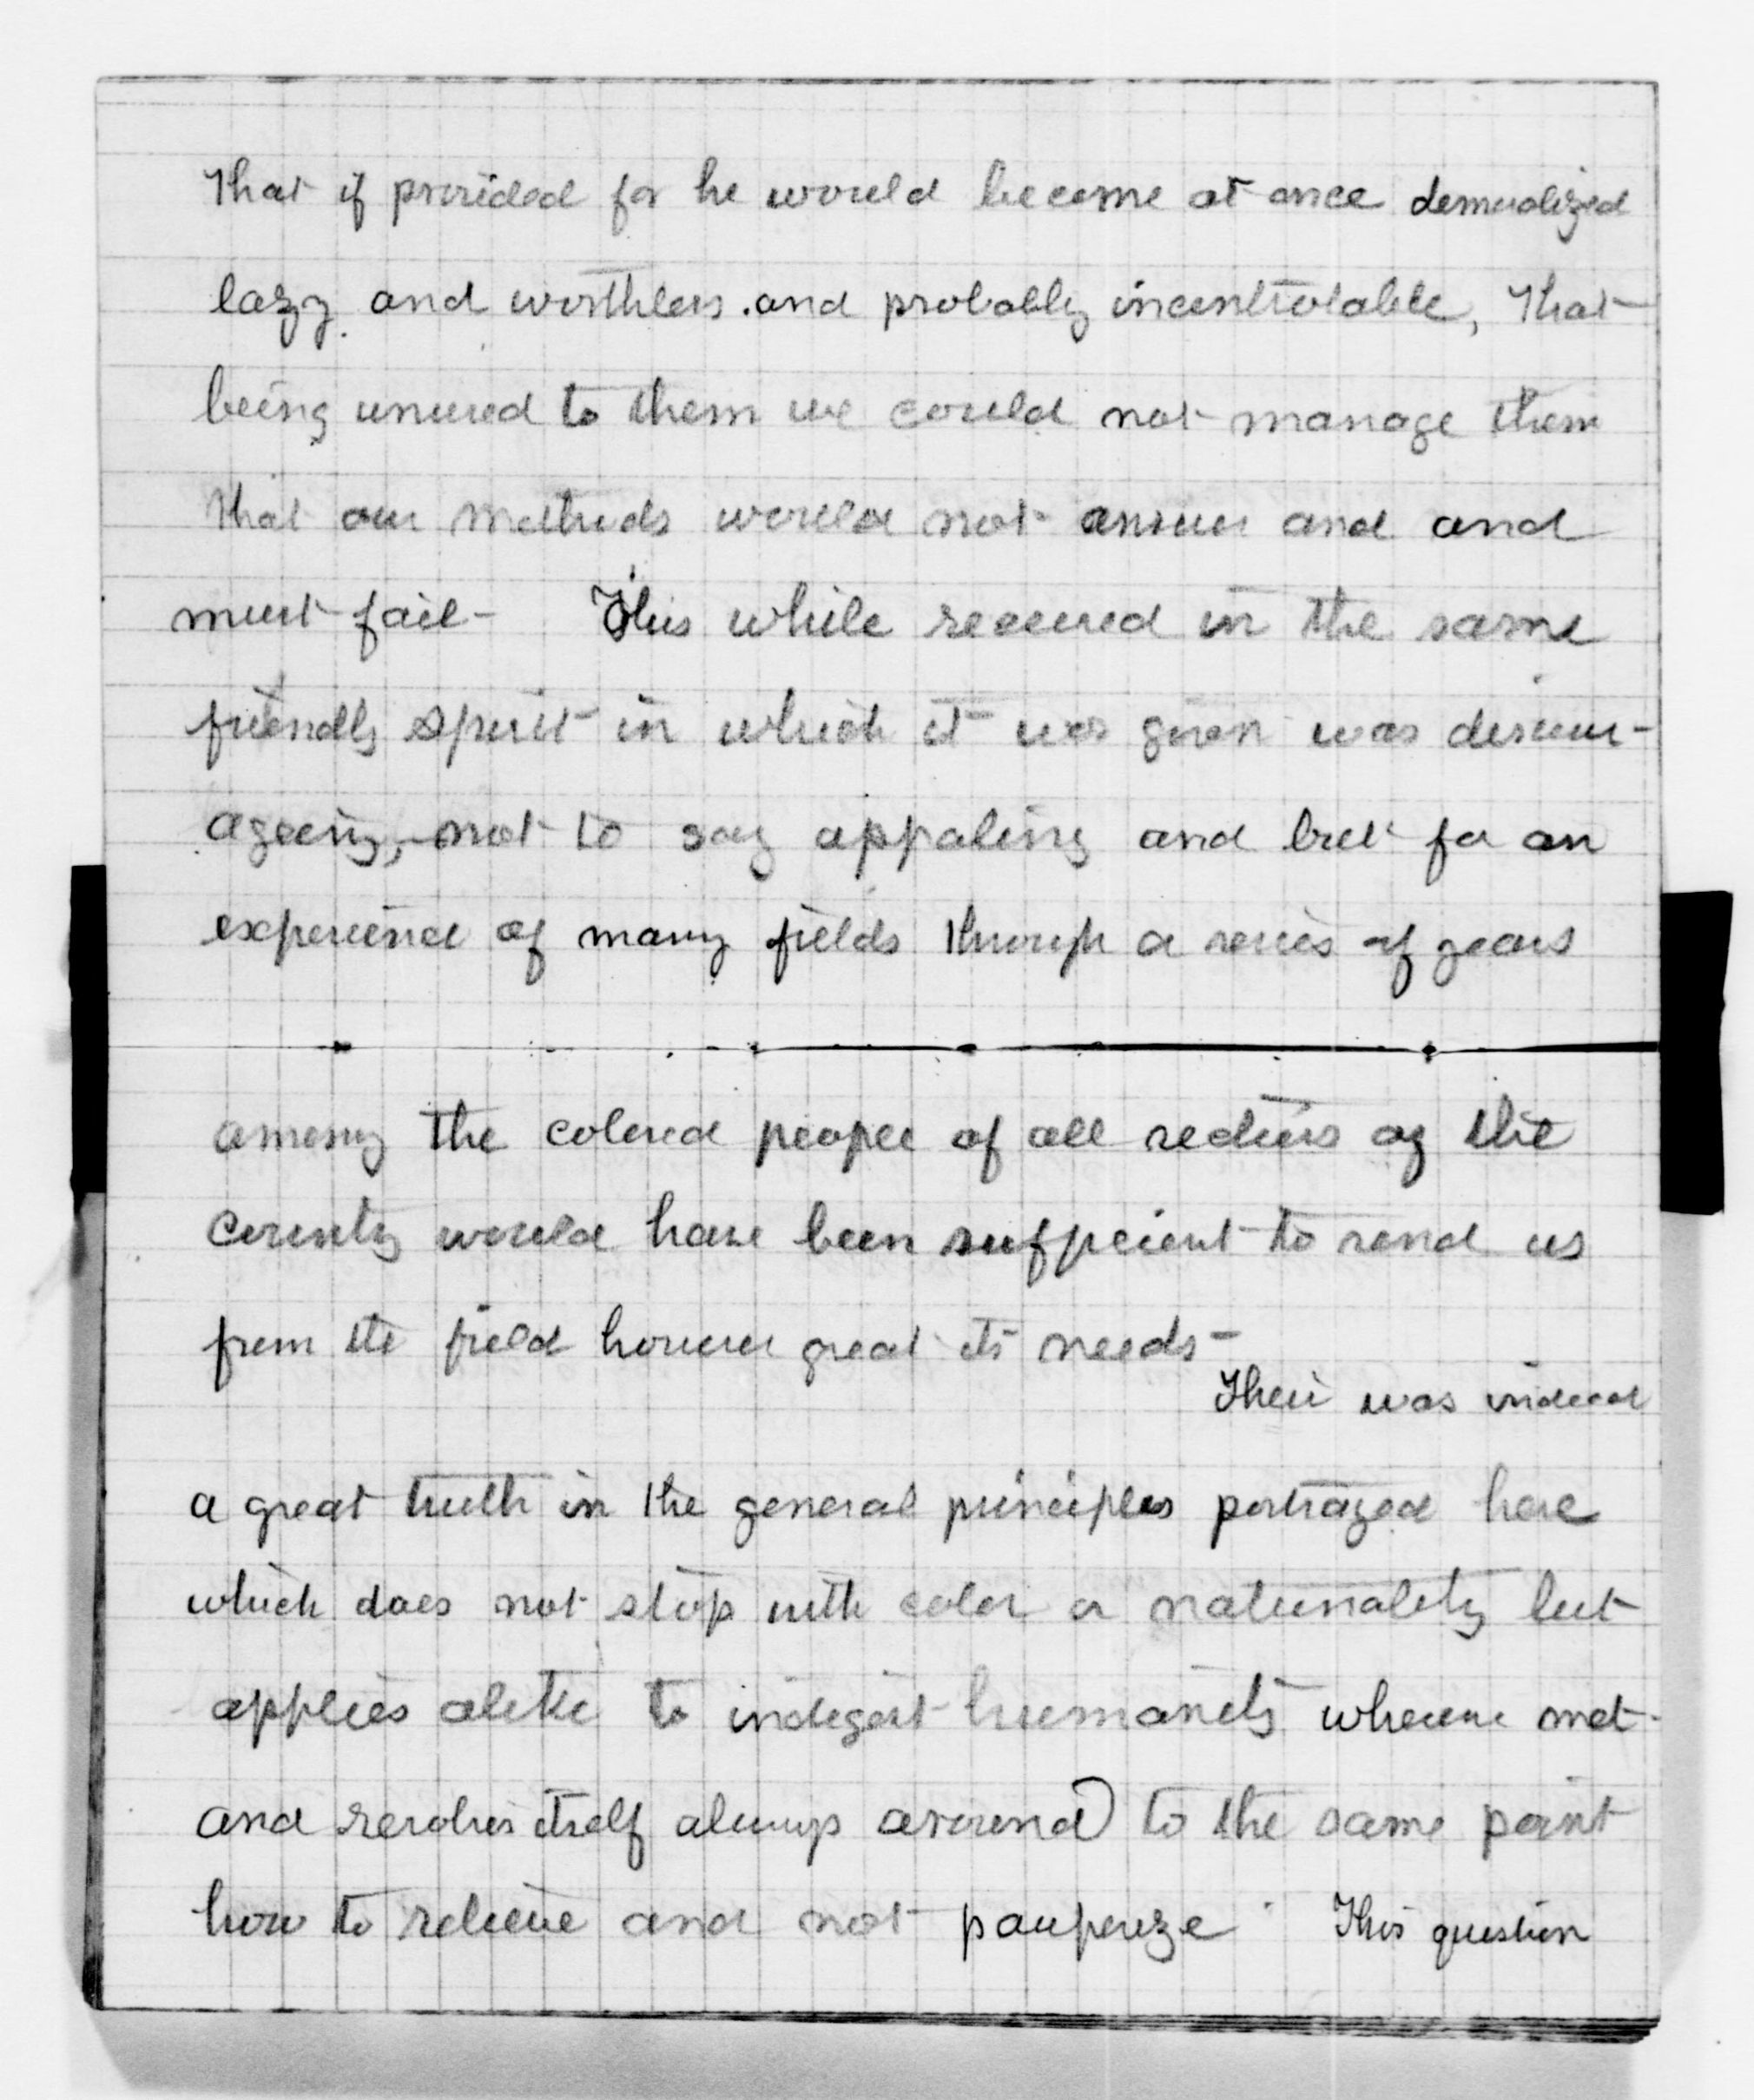 that if provided for he would become at once demoralized
lazy and worthless. and probably incontrolable, that
being unused to them we could not manage them
that our methods would not answer and and
must fail - This while received in the same
friendly spirit in which it was given was discour-
ageing, not to say appaling and but for an
experience of many fields through a series of years
among the colored people of all sections of the
country would have been sufficient to send us
from the field however great its needs -
There was indeed
a great truth in the general principles portrayed here
which does not stop with color or nationality but
applies alike to indigent humanity wherever met
and revolves itself always around to the same point
how to relieve and not pauperize This question